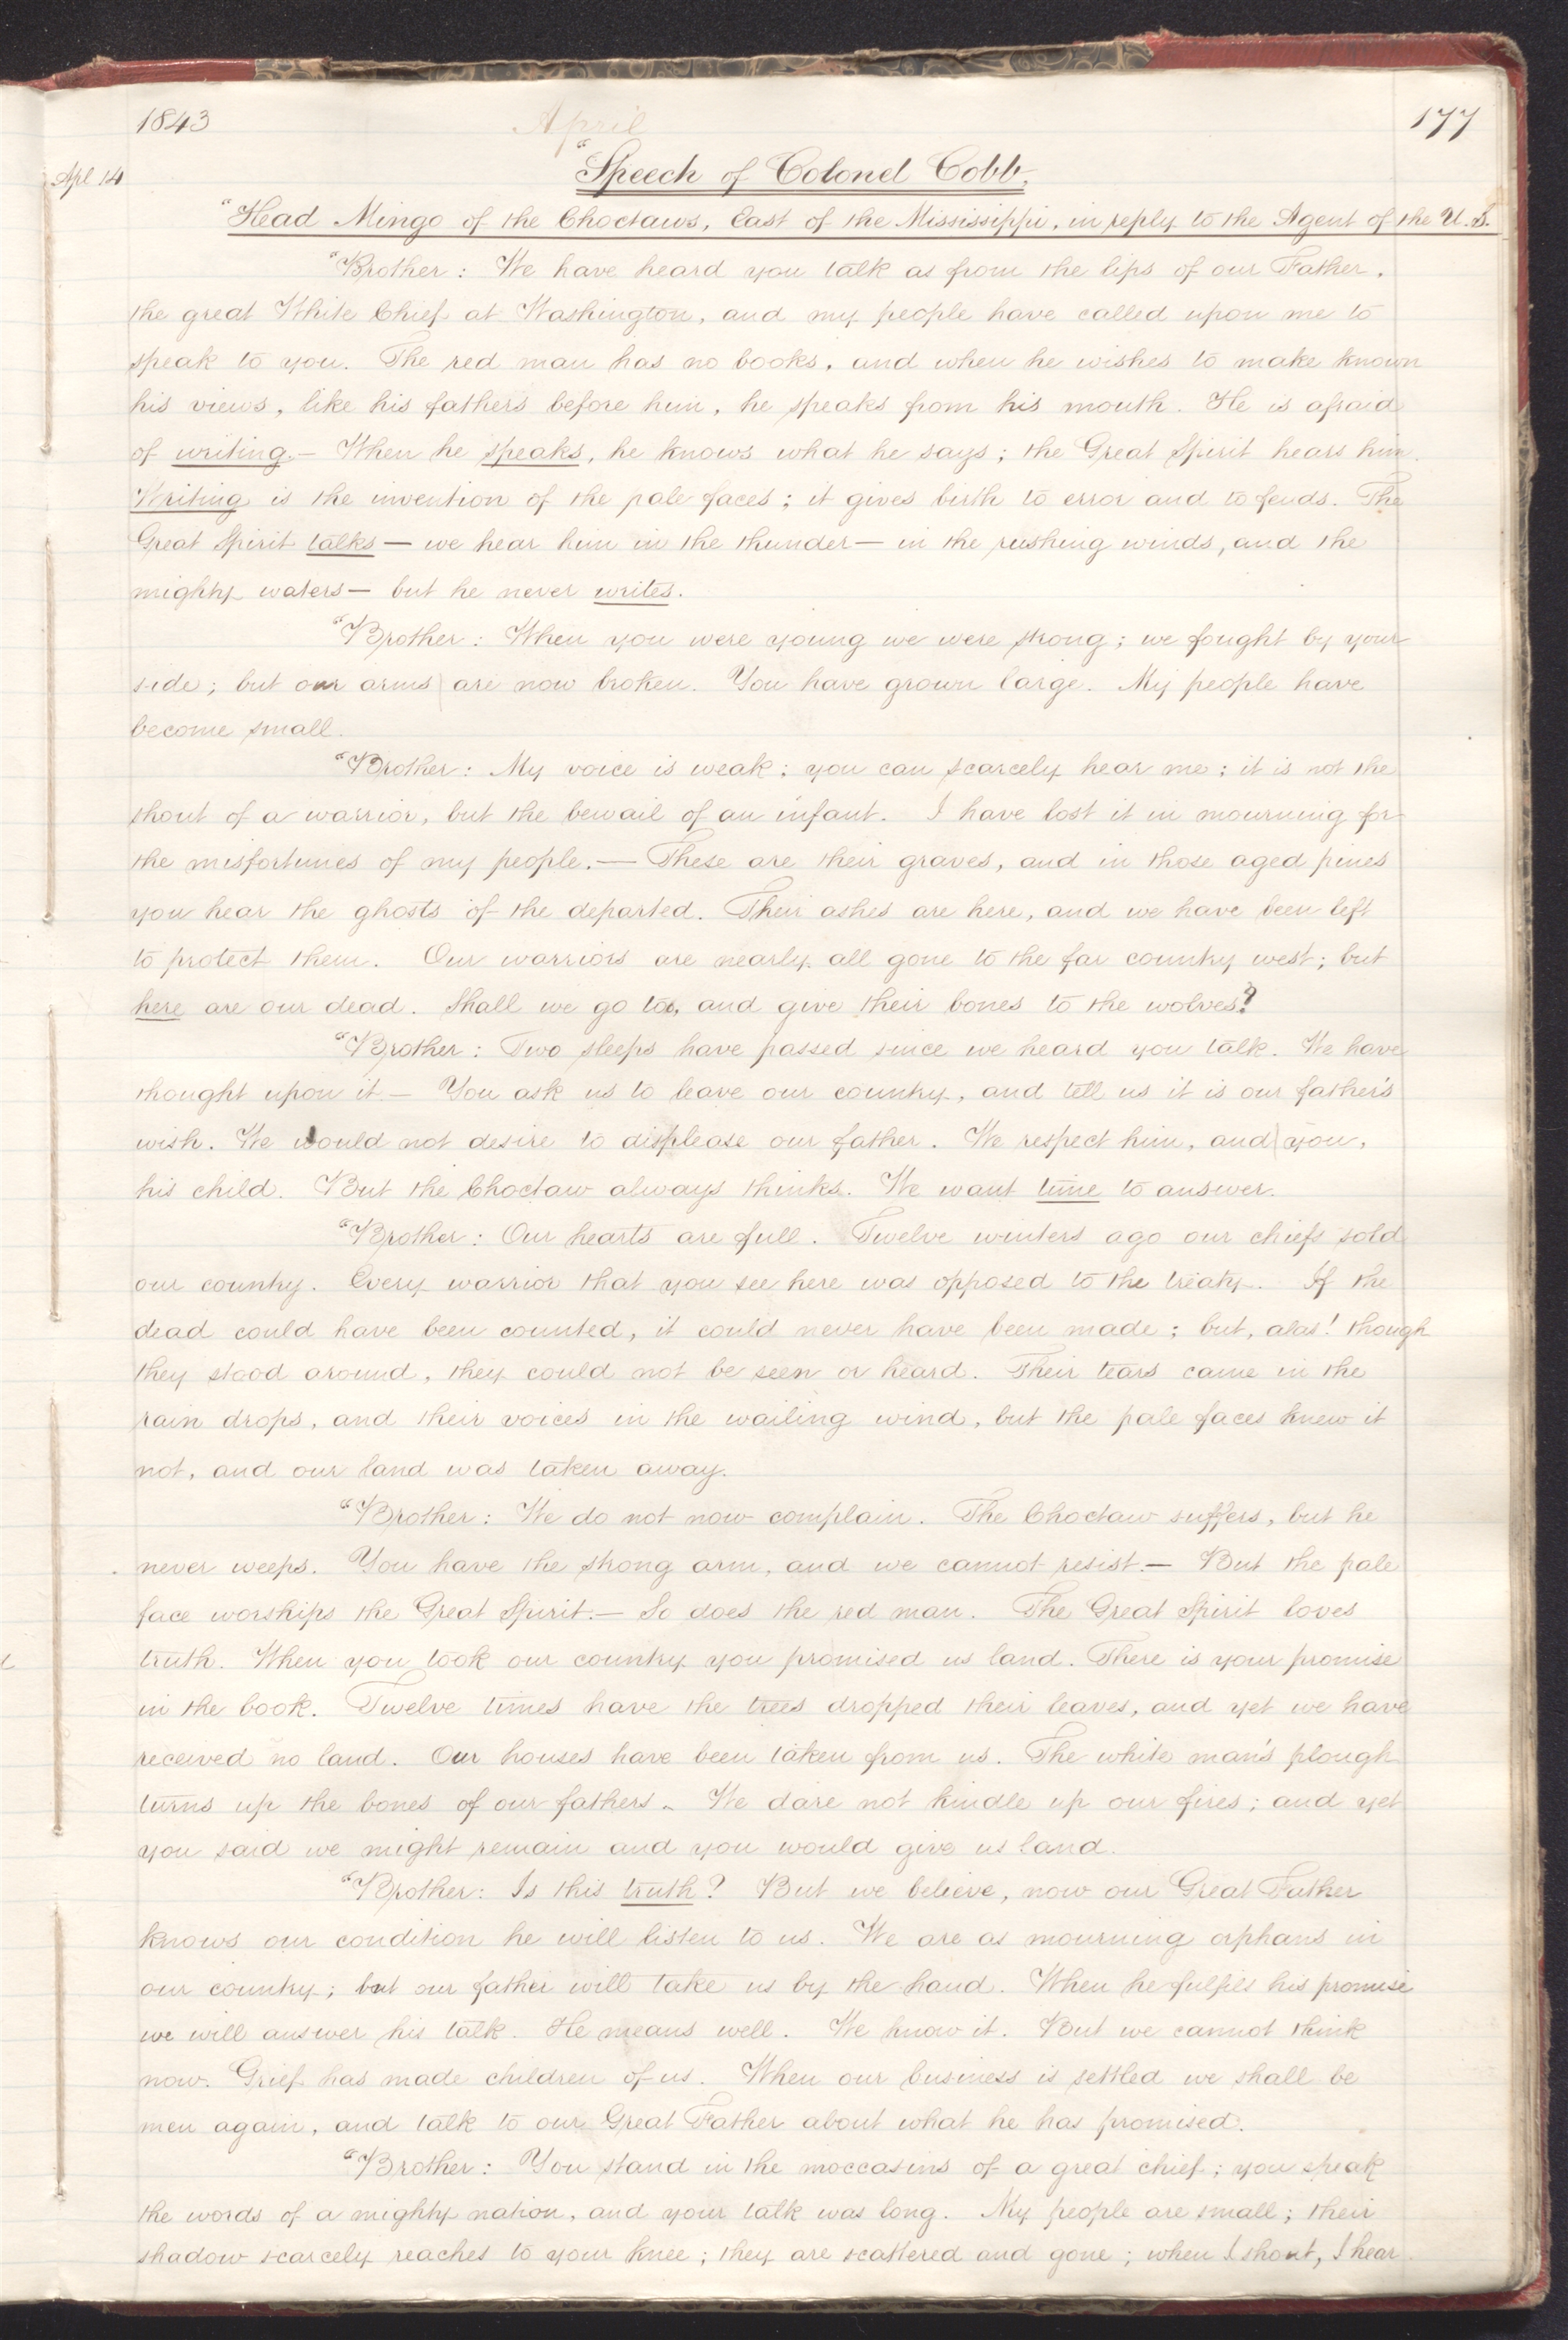 1843 April 177
Apl 14
"Speech of Colonel Cobb,
"Head Mingo of the Choctaws, East of the Mississippi, in reply to the Agent of the U.S.
"Brother: We have heard you talk as from the lips of our Father,
the great White Chief at Washington, and my people have called upon me to
speak to you. The red man has no books, and when he wishes to make known
his views, like his fathers before him, he speaks from his mouth. He is afraid
of writing.— When he speaks, he knows what he says; the Great Spirit hears him.
Writing is the invention of the pale faces; it gives birth to error and to feuds. The
Great Spirit talks — we hear him in the thunder — in the rushing winds, and the
mighty waters — but he never writes.
"Brother: When you were young we were strong; we fought by your
side; but our arms are now broken. You have grown large. My people have
become small.
"Brother: My voice is weak; you can scarcely hear me; it is not the
shout of a warrior, but the bewail of an infant. I have lost it in mourning for
the misfortunes of my people.— These are their graves, and in those aged pines
you hear the ghosts of the departed. Their ashes are here, and we have been left
to protect them. Our warriors are nearly all gone to the far country west; but
here are our dead. Shall we go too, and give their bones to the wolves?
"Brother: Two sleeps have passed since we heard you talk. We have
thought upon it.— You ask us to leave our country, and tell us it is our father's
wish. We would not desire to displease our father. We respect him, and you,
his child. But the Choctaw always thinks. We want time to answer.
"Brother: Our hearts are full. Twelve winters ago our chiefs sold
our country. Every warrior that you see here was opposed to the treaty. If the
dead could have been counted, it could never have been made; but, alas! though
they stood around, they could not be seen or heard. Their tears came in the
rain drops, and their voices in the wailing wind, but the pale faces knew it
not, and our land was taken away.
"Brother: We do not now complain. The Choctaw suffers, but he
never weeps. You have the strong arm, and we cannot resist.— But the pale
face worships the Great Spirit.— So does the red man. The Great Spirit loves
truth. When you took our country you promised us land. There is your promise
in the book. Twelve times have the trees dropped their leaves, and yet we have
received no land. Our houses have been taken from us. The white man's plough
turns up the bones of our fathers. We dare not kindle up our fires; and yet
you said we might remain and you would give us land.
"Brother: Is this truth? But we believe, now our Great Father
knows our condition he will listen to us. We are as mourning orphans in
our country; but our father will take us by the hand. When he fulfils his promise
we will answer his talk. He means well. We know it. But we cannot think
now. Grief has made children of us. When our business is settled we shall be
men again, and talk to our Great Father about what he has promised.
"Brother: You stand in the moccasins of a great chief; you speak
the words of a mighty nation, and your talk was long. My people are small; their
shadow scarcely reaches to your knee; they are scattered and gone; when I shout, I hear